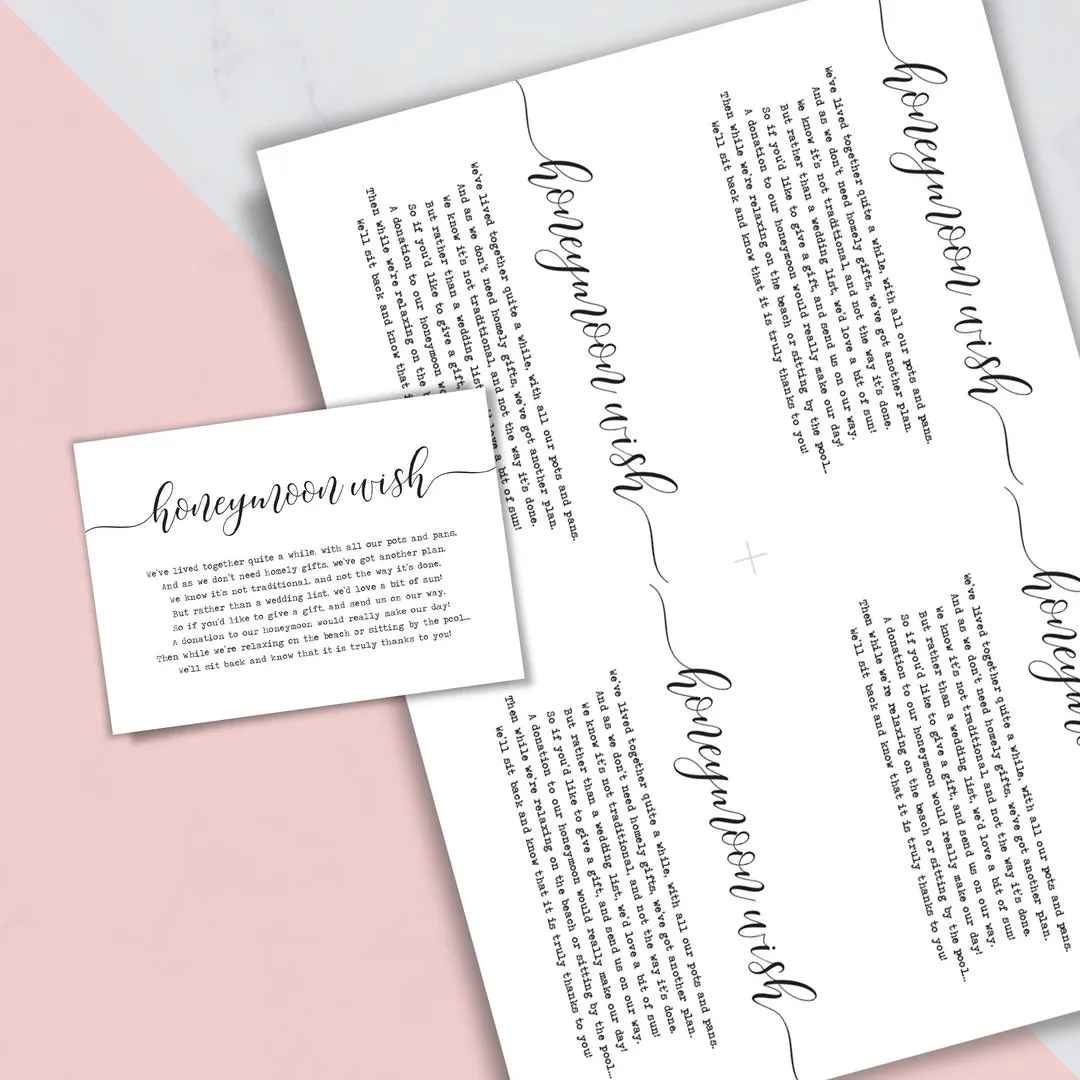 honeymoon wish
We've lived together quite a while, with all our pots and pans.
And as we don't need homely gifts, we've got another plan.
We know it's not traditional, and not the way it's done.
But rather than a wedding list, we'd love a bit of sun!
So if you'd like to give a gift, and send us on our way.
A donation to our honeymoon would really make our day!
Then while we're relaxing on the beach or sitting by the pool...
We'll sit back and know that it is truly thanks to you!
honeymoon wish
We've lived together quite a while, with all our pots and pans.
And as we don't need homely gifts, we've got another plan.
We know it's not traditional, and not the way it's done.
But rather than a wedding list love a bit of sun!
So if you'd like to give a gift,
A donation to our honeymoon
Then while we're relaxing on the
We'll sit back and know that
honeymoon wish
We've lived together quite a while, with all our pots and pans.
And as we don't need homely gifts, we've got another plan.
We know it's not traditional, and not the way it's done.
But rather than a wedding list, we'd love a bit of sun!
So if you'd like to give a gift, and send us on our way.
A donation to our honeymoon would really make our day!
Then while we're relaxing on the beach or sitting by the pool...
We'll sit back and know that it is truly thanks to you!
honeymoon wish
We've lived together quite a while, with all our pots and pans.
And as we don't need homely gifts, we've got another plan.
We know it's not traditional, and not the way it's done.
But rather than a wedding list, we'd love a bit of sun!
So if you'd like to give a gift, and send us on our way.
A donation to our honeymoon would really make our day!
Then while we're relaxing on the beach or sitting by the pool...
We'll sit back and know that it is truly thanks to you!
honeymo
We've lived together quite a while, with all our pots and pans.
And as we don't need homely gifts, we've got another plan.
We know it's not traditional, and not the way it's done.
But rather than a wedding list, we'd love a bit of sun!
So if you'd like to give a gift, and send us on our way.
A donation to our honeymoon would really make our day!
Then while we're relaxing on the beach or sitting by the pool...
We'll sit back and know that it is truly thanks to you!